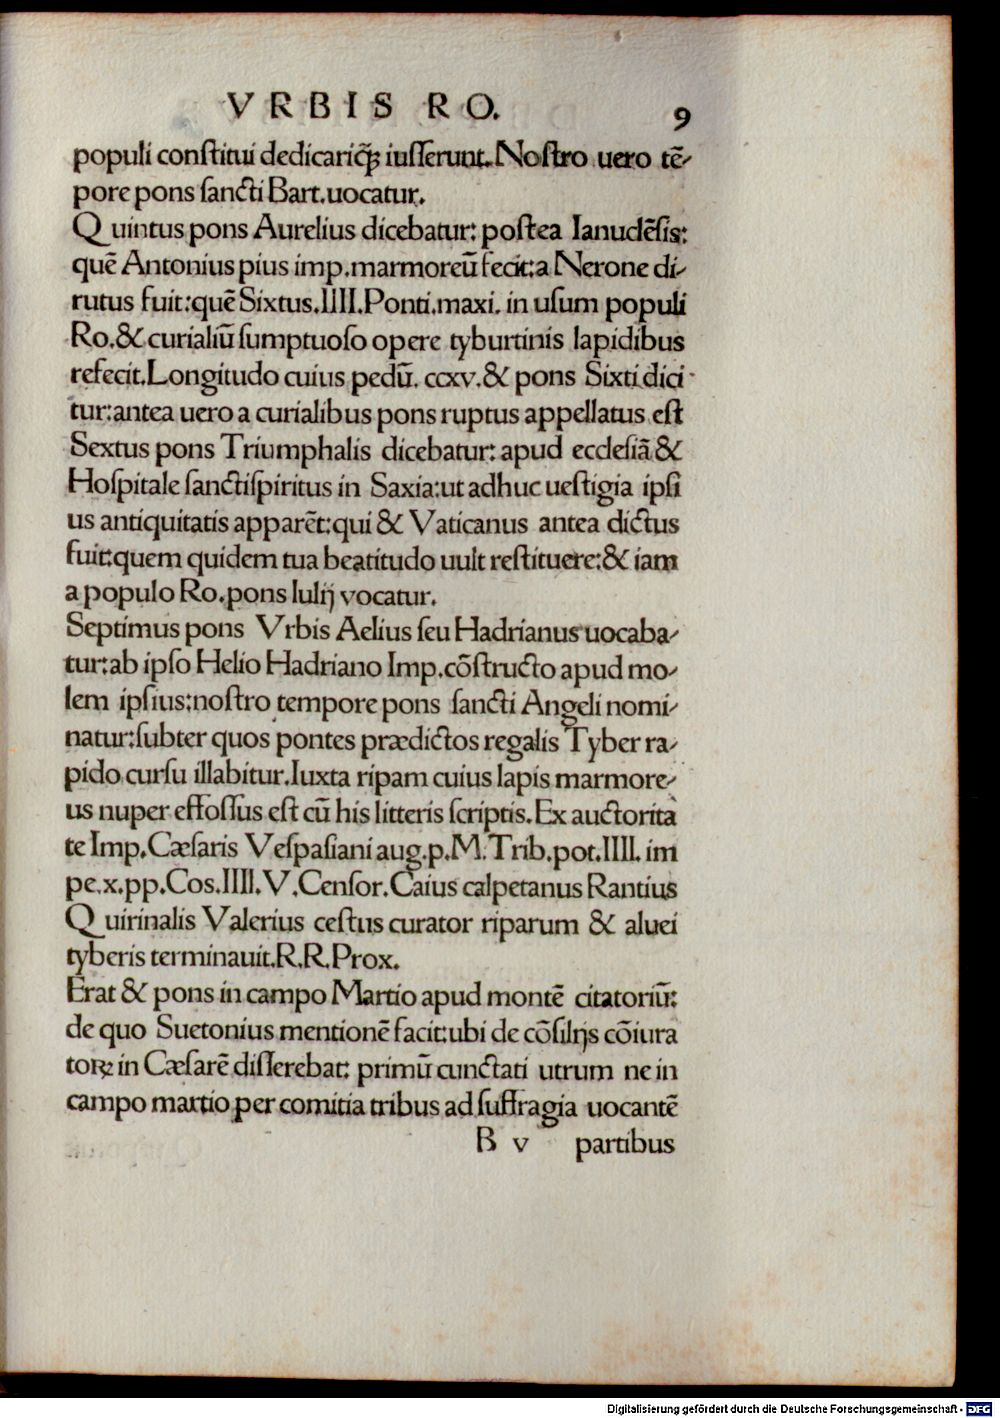 VRBIS RO. 9
populi conſtitui dedicariq̃ꝫ iuſſerunt. Noſtro uero tē-
pore pons ſancti Bart. uocatur.
Quintus pons Aurelius dicebatur: poſtea Ianudēſis:
quē Antonius pius imp. marmoreū fecit: a Nerone di-
rutus fuit: quē Sixtus. IIII. Ponti. maxi. in uſum populi
Ro. & curialiū ſumptuoſo opere tyburtinis lapidibus
refecit. Longitudo cuius pedū. ccxv. & pons Sixti dici-
tur: antea uero a curialibus pons ruptus appellatus eſt
Sextus pons Triumphalis dicebatur: apud eccleſiā &
Hoſpitale ſanctiſpiritus in Saxia: ut adhuc ueſtigia ipſi
us antiquitatis apparēt: qui & Vaticanus antea dictus
fuit: quem quidem tua beatitudo uult reſtituere: & iam
a populo Ro. pons Iulij vocatur.
Septimus pons Vrbis Aelius ſeu Hadrianus uocaba-
tur: ab ipſo Helio Hadriano Imp. cōſtructo apud mo-
lem ipſius: noſtro tempore pons ſancti Angeli nomi-
natur: ſubter quos pontes prædictos regalis Tyber ra-
pido curſu illabitur. Iuxta ripam cuius lapis marmore-
us nuper effoſſus eſt cū his litteris ſcriptis. Ex auctorita
te Imp. Cæſaris Veſpaſiani aug. p. M. Trib. pot. IIII. im
pe. x. pp. Cos. IIII. V. Cenſor. Caius calpetanus Rantius
Quirinalis Valerius ceſtus curator riparum & aluei
tyberis terminauit. R. R. Prox.
Erat & pons in campo Martio apud montē citatoriū:
de quo Suetonius mentionē facit: ubi de cōſilijs cōiura
toꝝ in Cæſarē diſſerebat: primū cunctati utrum ne in
campo martio per comitia tribus ad ſuffragia uocantē
B v partibus
Digitalisierung gefördert durch die Deutsche Forschungsgemeinschaft - DFG